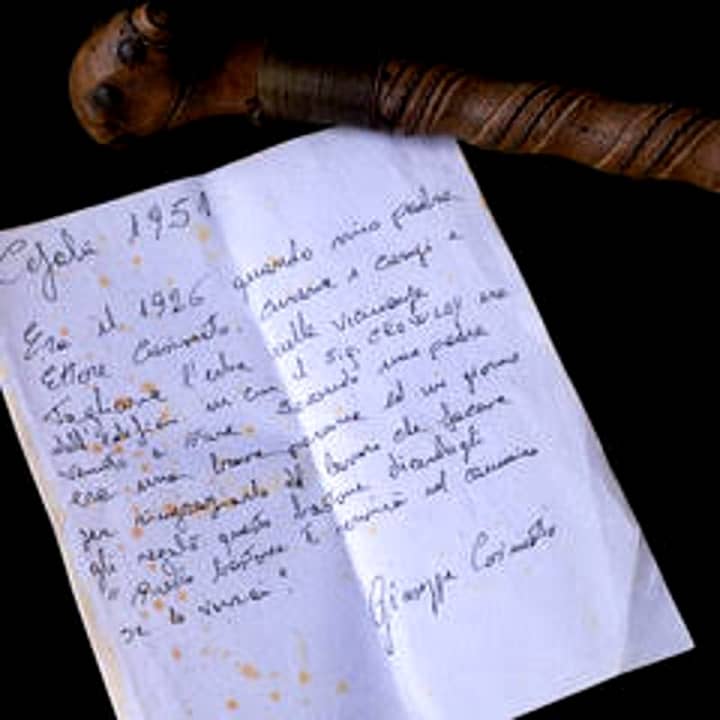 Cefalù 1951
Era il 1926 quando mio padre
Ettore Cosimato, curava i campi e
Tagliava l'erba nelle vicinanze
dell'edificio in cui il sig. CROWLEY era
venuto a vivere. Secondo mio padre
era una brava persona ed un giorno
per ringraziarlo del lavoro che faceva
gli regalò questo bastone dicendogli
" Questo bastone ti servirà nel cammino
se lo vorrai".
Giuseppe Cosimato